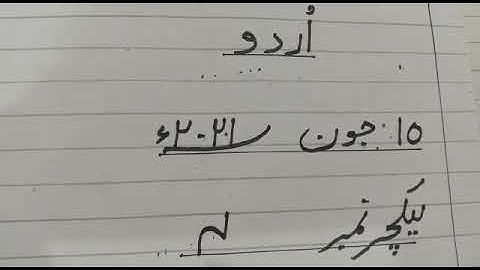 اُردو
۱۵: جون ۲۰۲۱ء
لیکچر نمبر ۴